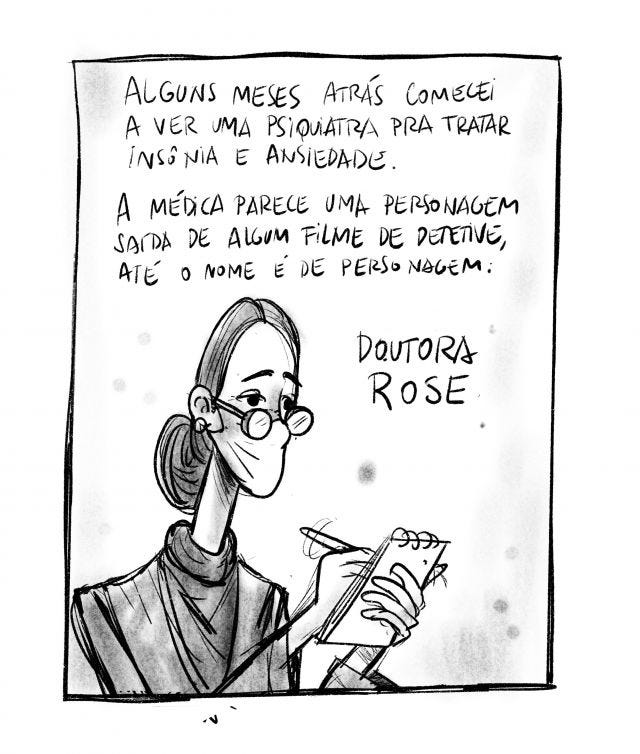 ALGUNS MESES ATRÁS COMECEI
A VER UMA PSIQUIATRA PRA TRATAR
INSÔNIA E ANSIEDADE.
A MÉDICA PARECE UMA PERSONAGEM
SAÍDA DE ALGUM FILME DE DETETIVE,
ATÉ O NOME É DE PERSONAGEM:
DOUTORA
ROSE